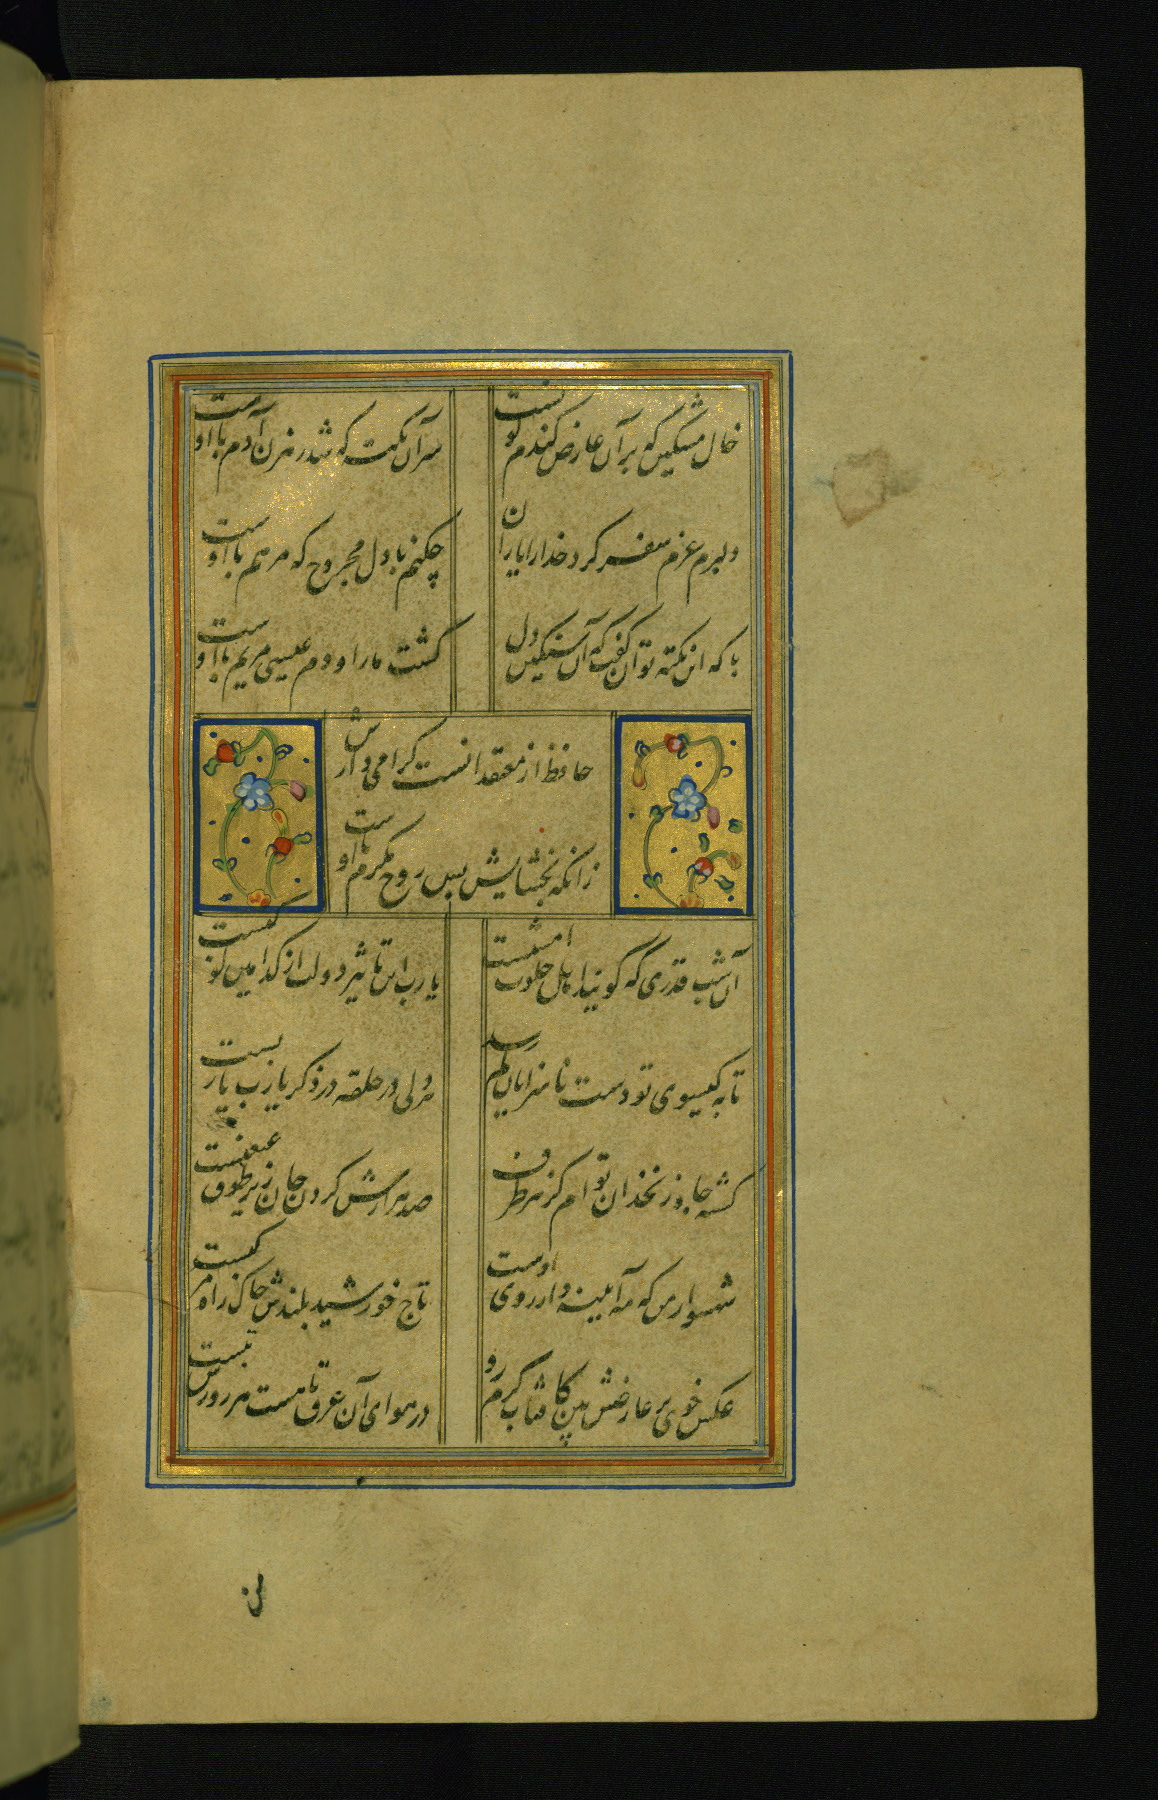 خال مشکین که بر آن عارض گندم گونست
سر آن نکته که شد رهزن آدم با اوست
دلبرم عزم سفر کرد خدا را یاران
چکنم با دل مجروح که مرهم با اوست
با که این نکته توان گفت که آن سنگین دل
کشت ما را و دم عیسی مریم با اوست
حافظ از معتقدانست گرامی دارش
زانکه بخشایش بس روح مکرم با اوست
آن شب قدری که گویند اهل خلوت امشبست
یا رب این تاثیر دولت از کدامین کوکبست
تا به گیسوی تو دست ناسزایان کم رسد
هر دلی در حلقه در ذکر یارب یاربست
کشته چاه زنخدان توام کز هر طرف
صد هزارش گردن جان زیر طوق غبغبست
شهسوار من که مه آیینه دار روی اوست
تاج خورشید بلندش خاک راه مرکبست
عکس خوی بر عارضش بین کافتاب گرم رو
در هوای آن عرق تا هست هر روزش تبست
من